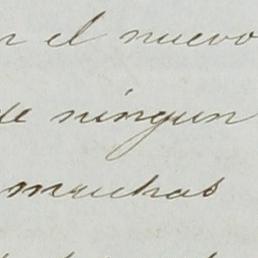 el nuevo
de ningun
muchas